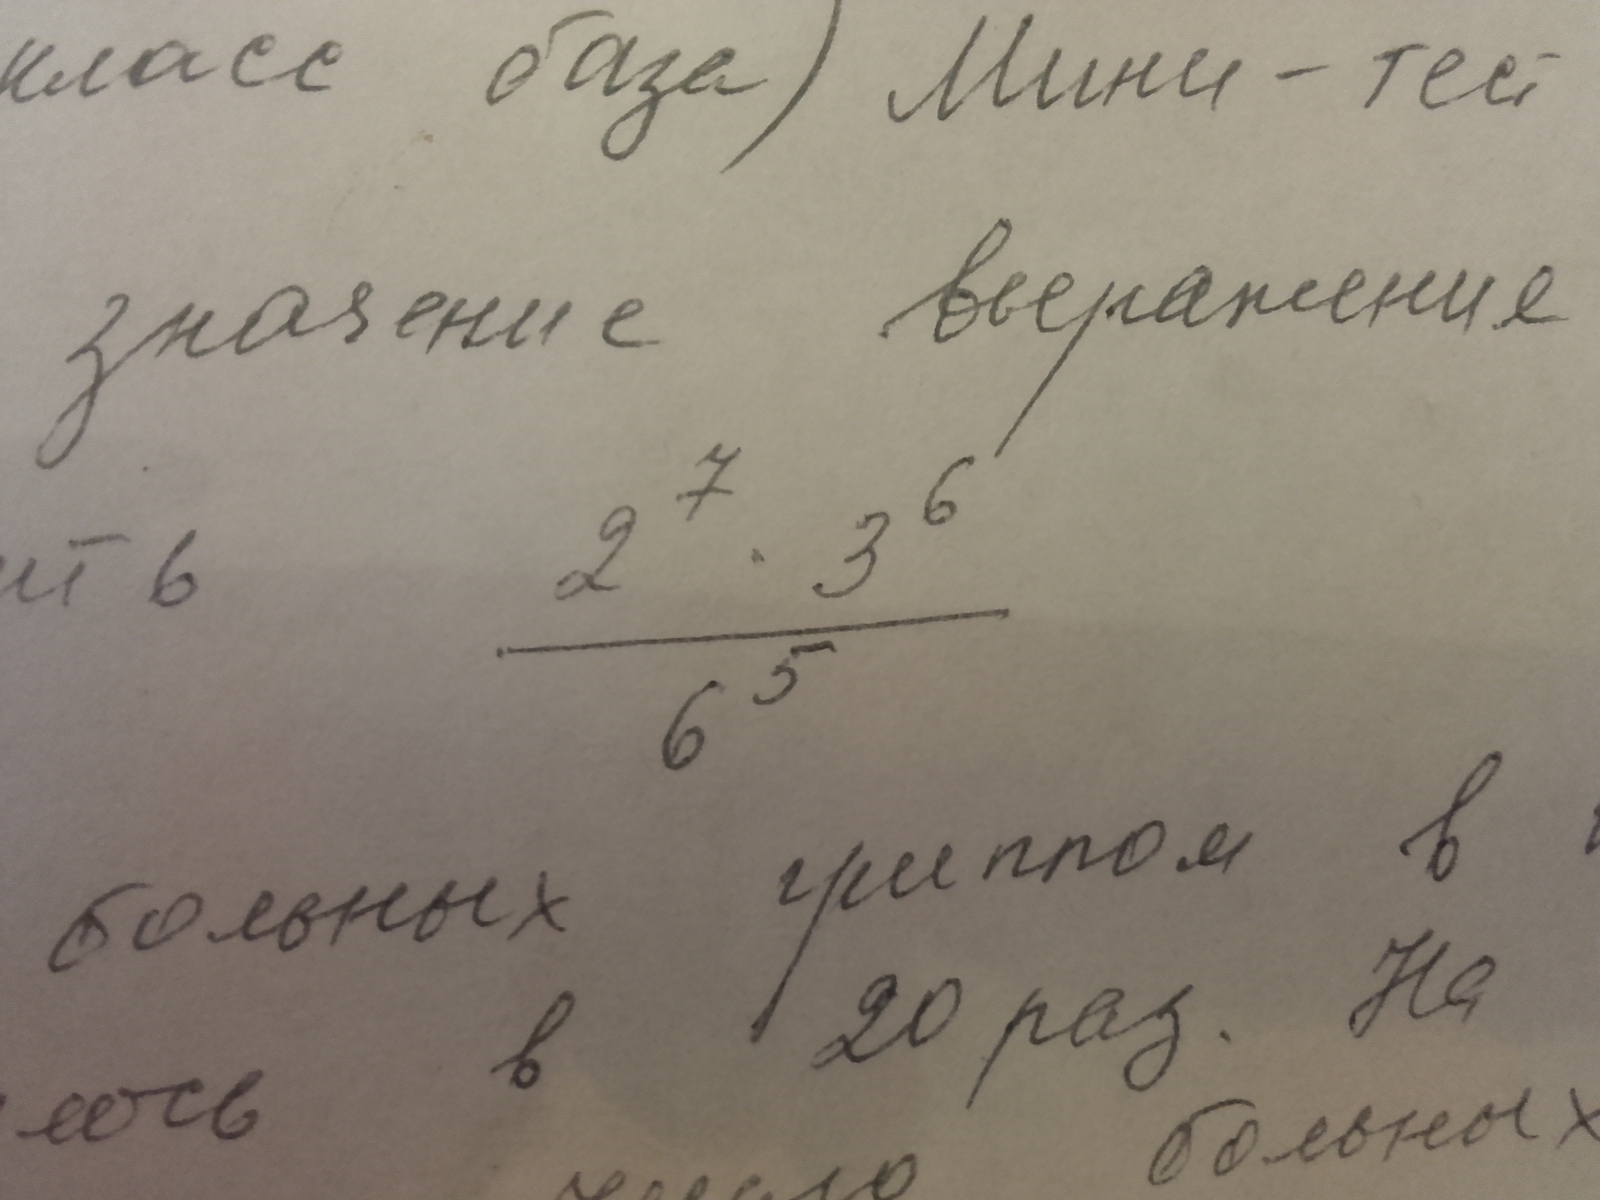 класс база) Мини-тест
значение выражение
ить 2⁷ · 3⁶
6⁵
больных гриппом в
лось в 20 раз. На
число больных